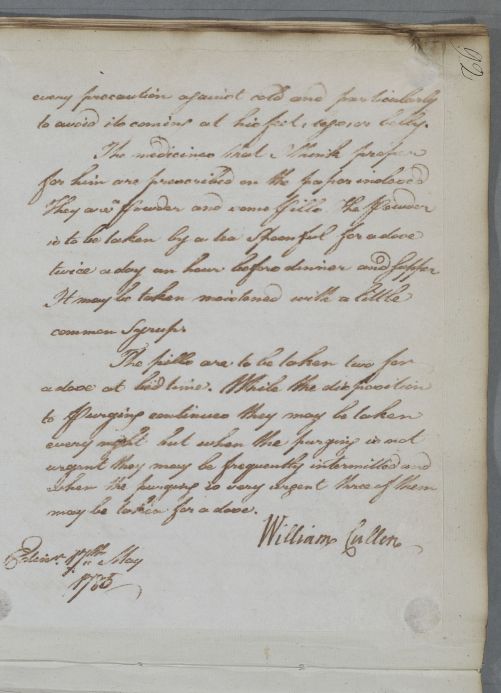 92
every precaution against cold and particularly
to avoid its coming at his feet, legs, or belly.
The medicines that I think proper
for him are prescribed on the paper inclosed
They are a Powder and some Pills. The Powder
is to be taken by a tea Spoonful for a dose
twice a day an hour before dinner and Supper
It may be taken moistened with a little
common Syrup.
The pills are to be taken two for
a dose at bed time. While the disposition
to Purging continues they may be taken
every night but when the purging is not
urgent they may be frequently intermitted and
when the purging is very urgent three of them
may be taken for a dose.
William Cullen
Edinr. 17th May